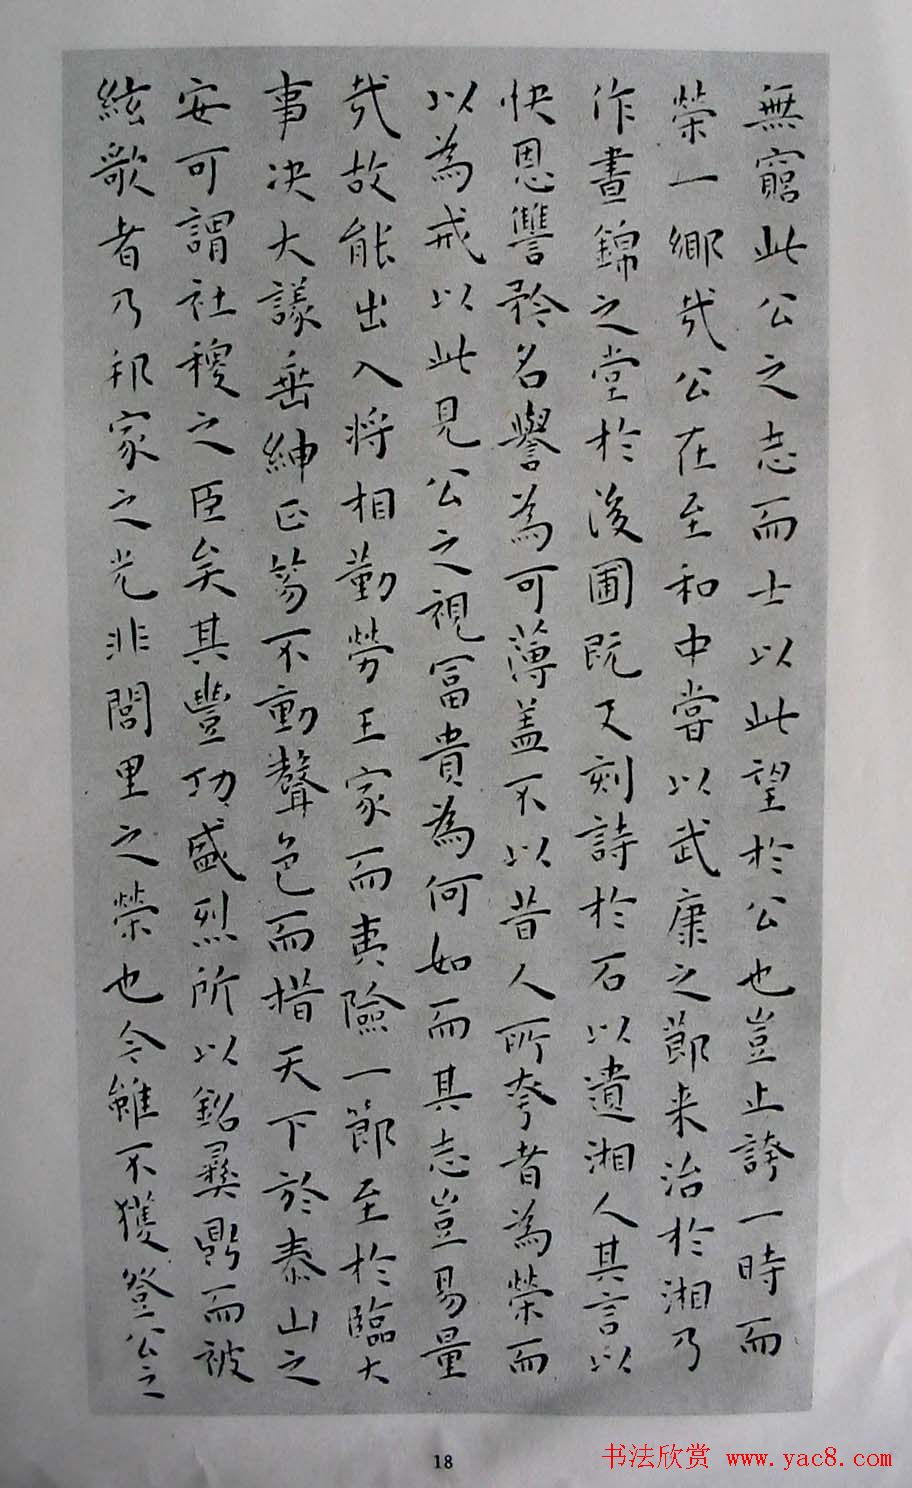 無窮此公之志而士以此望於公也豈止誇一時而
榮一鄉哉公在至和中嘗以武康之節来治於湘乃
作晝錦之堂於後圃既又刻詩於石以遺湘人其言以
快恩讐矜名譽為可薄盖不以昔人所夸者為榮而
以為戒以此見公之視冨貴為何如而其志豈易量
哉故能出入將相勤勞王家而夷險一節至於臨大
事决大議垂紳正笏不動聲色而措天下於泰山之
安可謂社稷之臣矣其豐功盛烈所以銘彞鼎而被
絃歌者乃邦家之光非閭里之榮也今雖不獲登公之
18
书法欣赏 www.yac8.com